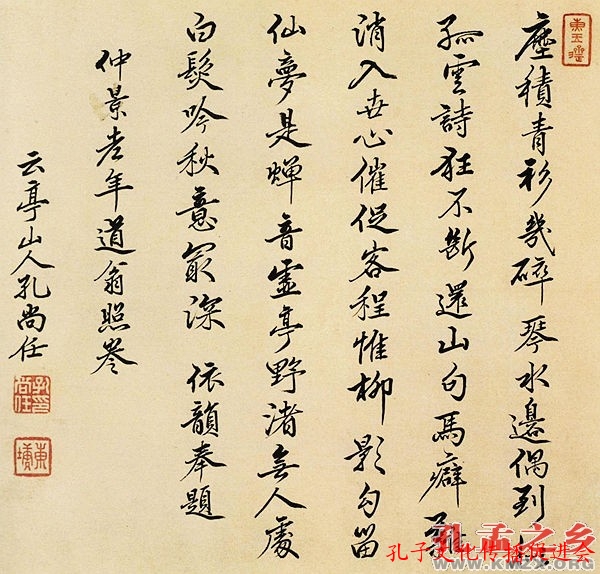 塵積青衫幾碎琴水邊偶到
孤雲詩狂不斷還山句馬癖難
消入世心催促客程惟柳影勾留
仙夢是蟬音虛亭野渚無人處
白髮吟秋意最深 依韻奉題
仲景老年道翁照
云亭山人孔尚任
東塘
孔孟之乡
孔子文化传播促进会
WWW.KMZX.ORG